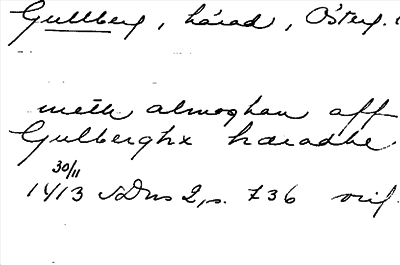 Gullberg, härad, Österg.
meth almoghan aff
Gulberghx hæradhe
30/11
1413 SDns 2, s. 736 orig.